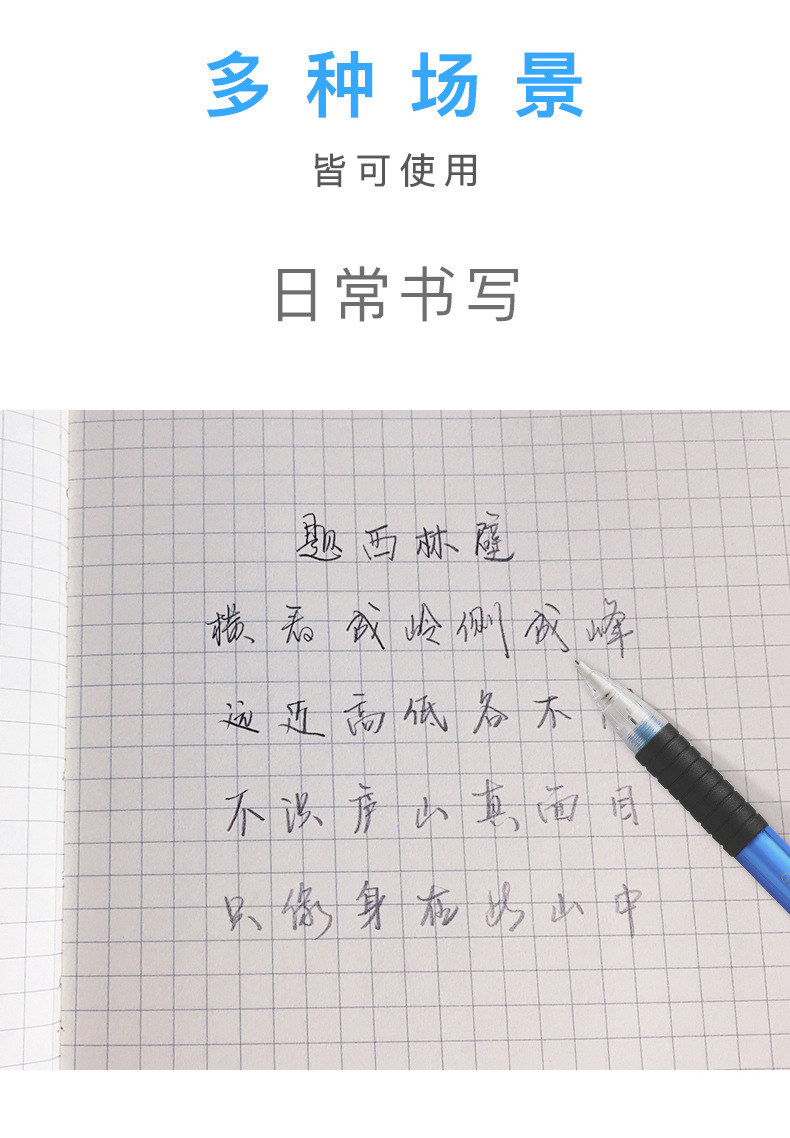 多种场景
皆可使用
日常书写
题西林壁
横看成岭侧成峰
远近高低各不
不识庐山真面目
只缘身在此山中